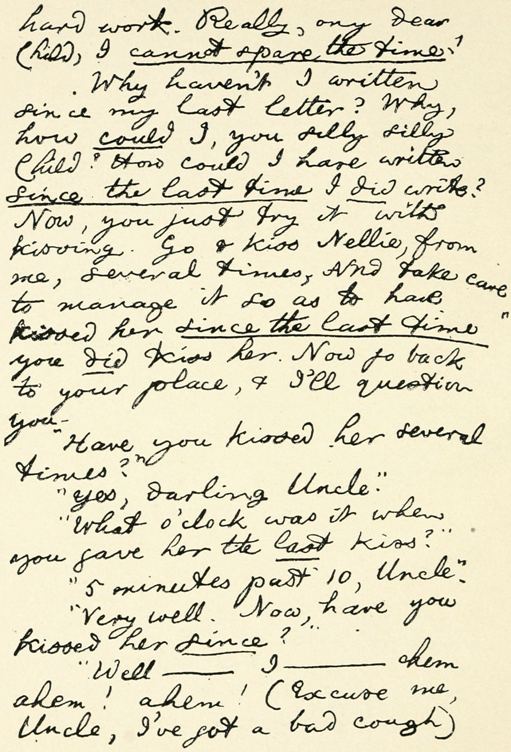 hard work. Really, my dear
Child, I cannot spare the time."
Why haven't I written
since my last letter? Why,
how could I, you silly silly
Child? How could I have written
since the last time I did write?
Now, you just try it with
kissing. Go & kiss Nellie, from
me, several times, And take care
to manage it so as to have
kissed her since the last time
you did kiss her. Now go back
to your place, & I'll question
you.
"Have you kissed her several
times?"
"Yes, darling Uncle."
"What o'clock was it when
you gave her the last kiss?"
"5 minutes past 10, Uncle."
"Very well. Now, have you
kissed her since?"
"Well —— I —— ahem
ahem! ahem! (Excuse me,
Uncle, I've got a bad cough)